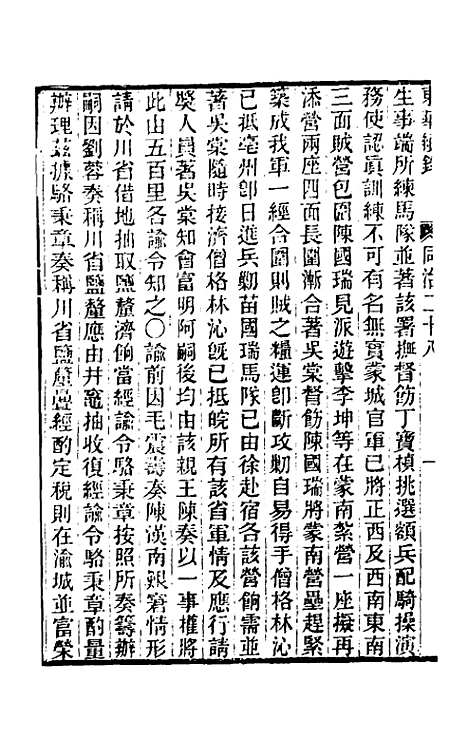 東華續錄　同治二十八　一
生事端所練馬隊並著該署撫督飭丁寶楨挑選額兵配騎操演
務使認眞訓練不可有名無實蒙城官軍已將正西及西南東南
三面賊營包圍陳國瑞見派遊擊李坤等在蒙南紮營一座擬再
添營兩座四面長圍漸合著吳棠督飭陳國瑞將蒙南營壘趕緊
築成我軍一經合圍則賊之糧運卽斷攻勦自易得手僧格林沁
已抵亳州卽日進兵勦苗國瑞馬隊已由徐赴宿各該營餉需並
著吳棠隨時接濟僧格林沁旣已抵皖所有該省軍情及應行請
獎人員著吳棠知會富明阿嗣後均由該親王陳奏以一事權將
此由五百里各諭令知之〇諭前因毛震壽奏陳漢南艱窘情形
請於川省借地抽取鹽釐濟餉當經諭令駱秉章按照所奏籌辦
嗣因劉蓉奏稱川省鹽釐應由井竈抽收復經諭令駱秉章酌量
辦理茲據駱秉章奏稱川省鹽釐疊經酌定稅則在渝城並富榮